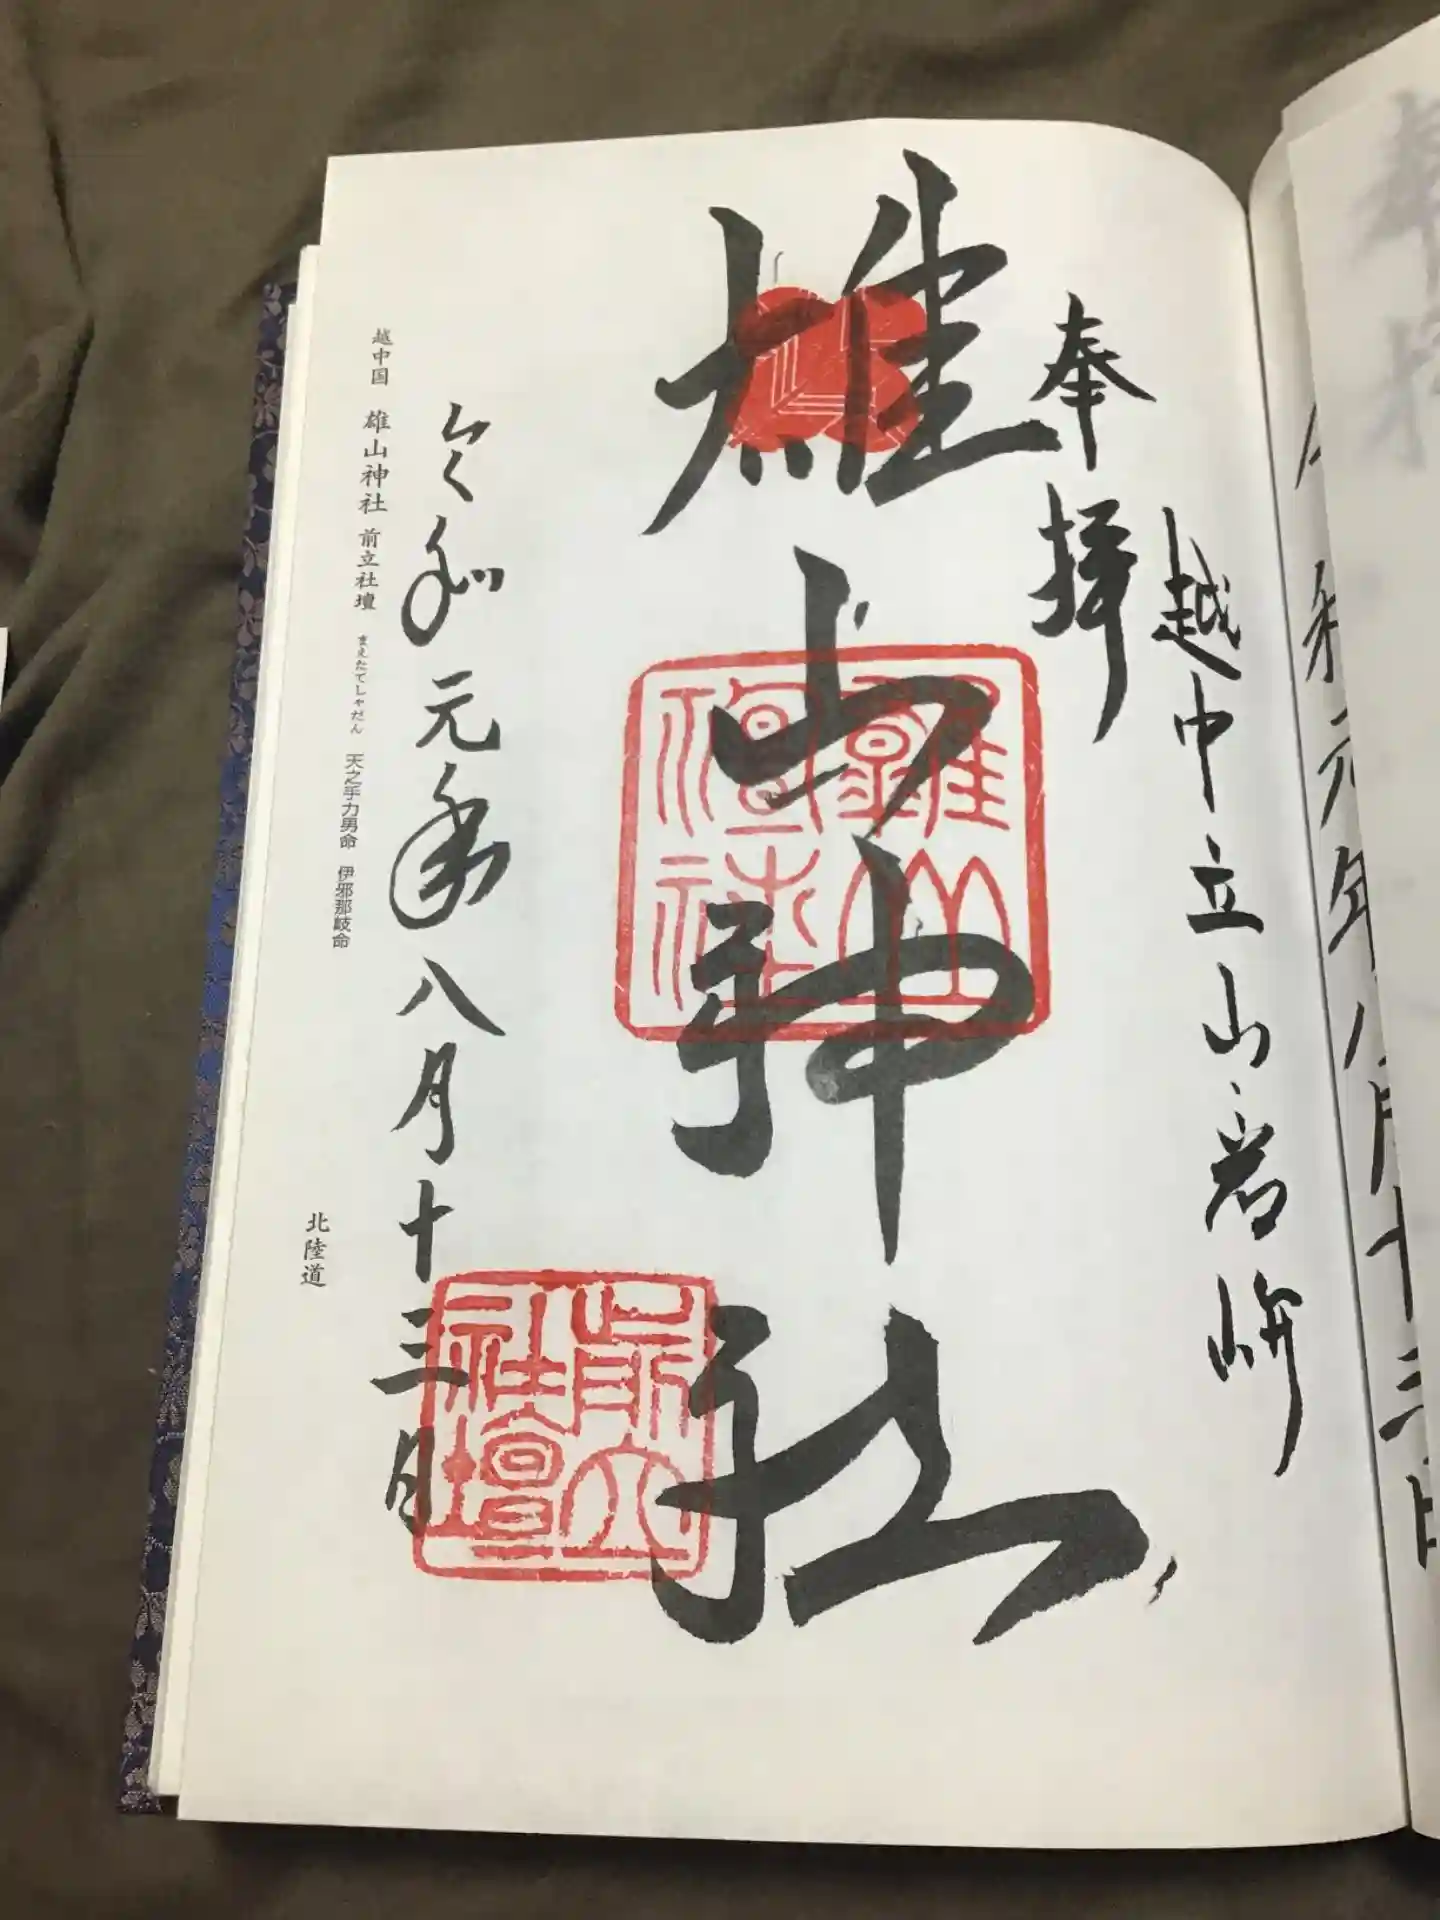 越中立山岩峅
奉拝
雄山神社
雄山神社
前立社壇
令和元年八月十三日
越中国 雄山神社 前立社壇 まえたてしゃだん 天之手力男命 伊邪那岐命
北陸道